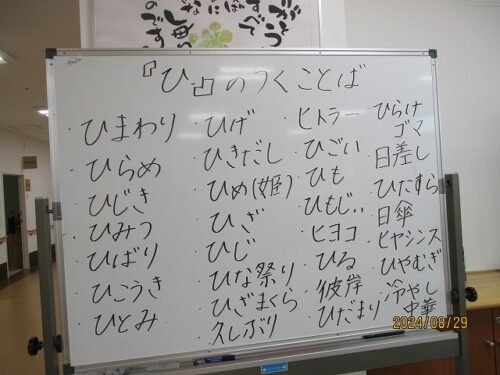 『ひ』のつくことば
・ひまわり
・ひらめ
・ひじき
・ひみつ
・ひばり
・ひこうき
・ひとみ
・ひげ
・ひきだし
・ひめ(姫)
・ひざ
・ひじ
・ひな祭り
・ひざまくら
・久しぶり
・ヒトラー
・ひごい
・ひも
・ひもじい
・ヒヨコ
・ひる
・彼岸
・ひだまり
・ひらけ
ゴマ
・日差し
・ひたすら
・日傘
・ヒヤシンス
・ひやむぎ
・冷やし
中華
2024/08/29